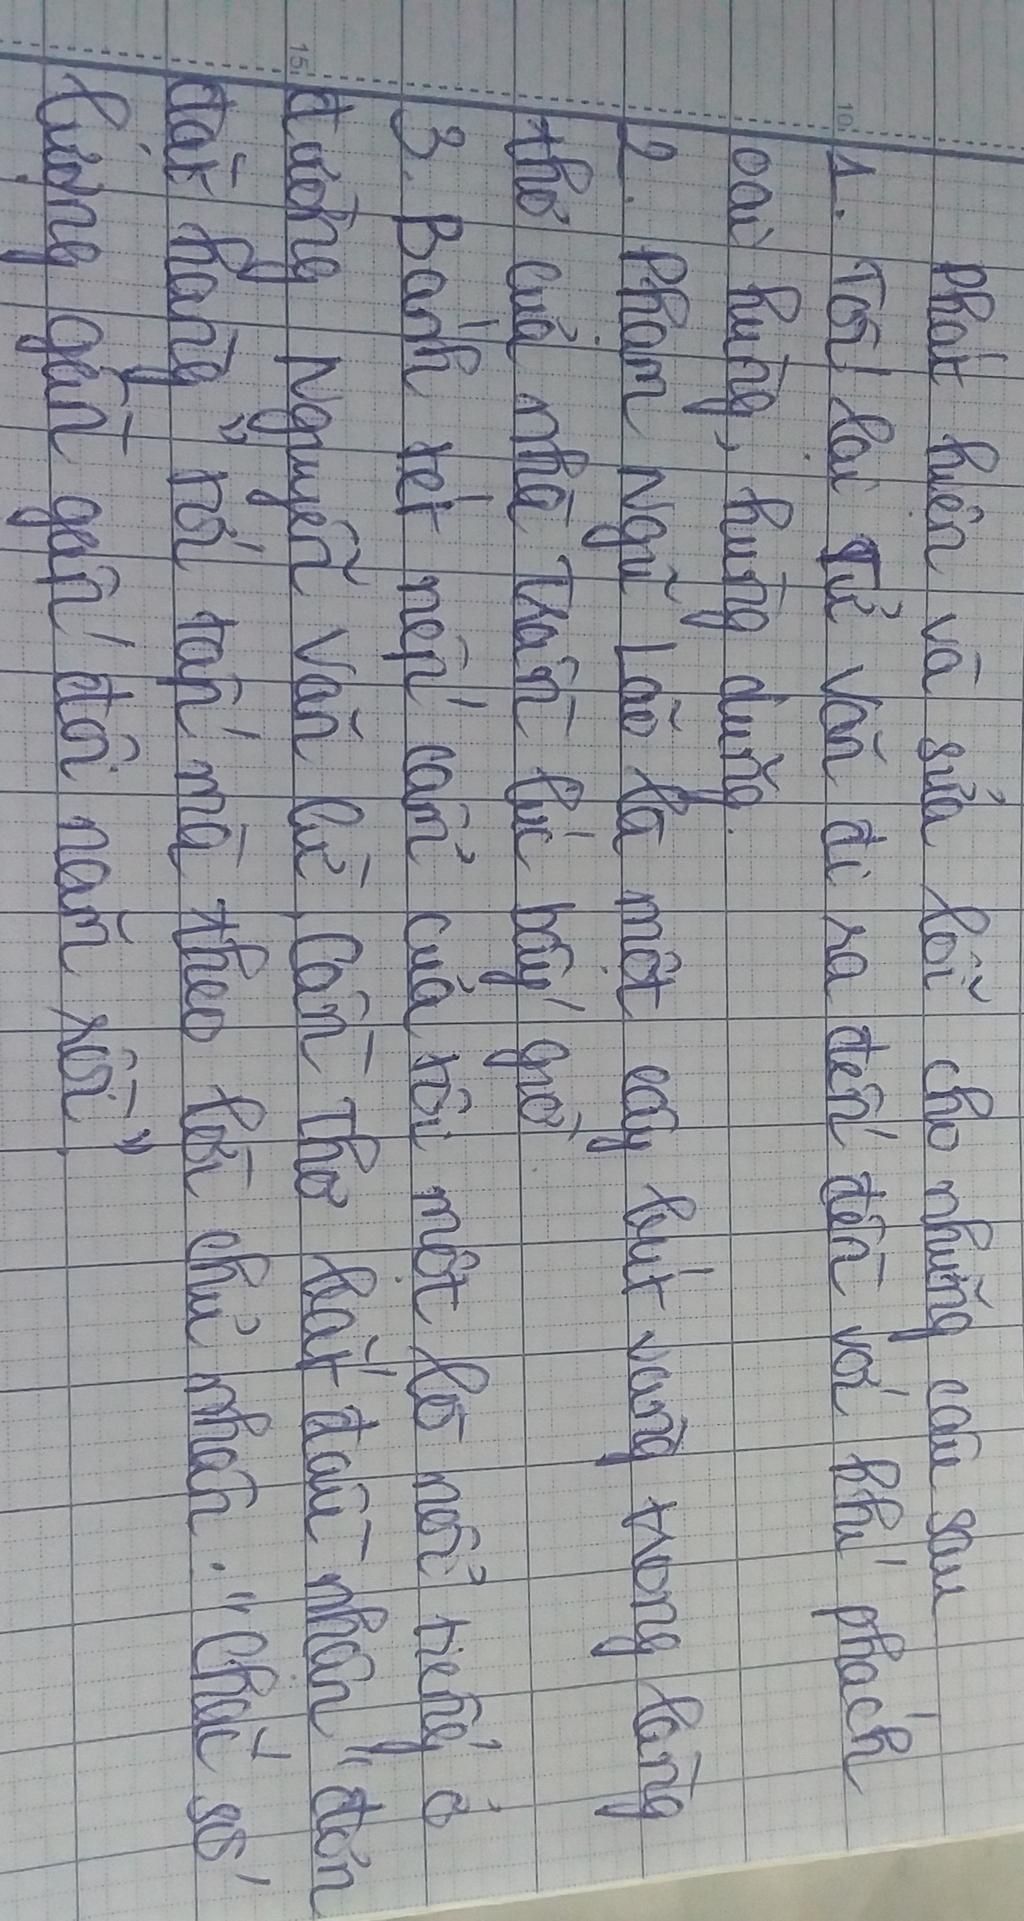 Phát hiện và sửa lỗi cho những câu sau
1. Tới lại Tử Văn đi ra đến đền với khí phách
oai hùng, hùng dũng.
2. Phạm Ngũ Lão là một cây bút vàng trong làng
thơ của nhà Trần lúc bấy giờ.
3. Bánh tét nếp cẩm của tôi một lò nổi tiếng ở
đường Nguyễn Văn Cừ, Cần Thơ bắt đầu nhận "đơn
đặt hàng" tới tấp mà theo lời chủ nhân. "Chắc số
lượng gần gấp đôi năm rồi"
10
15